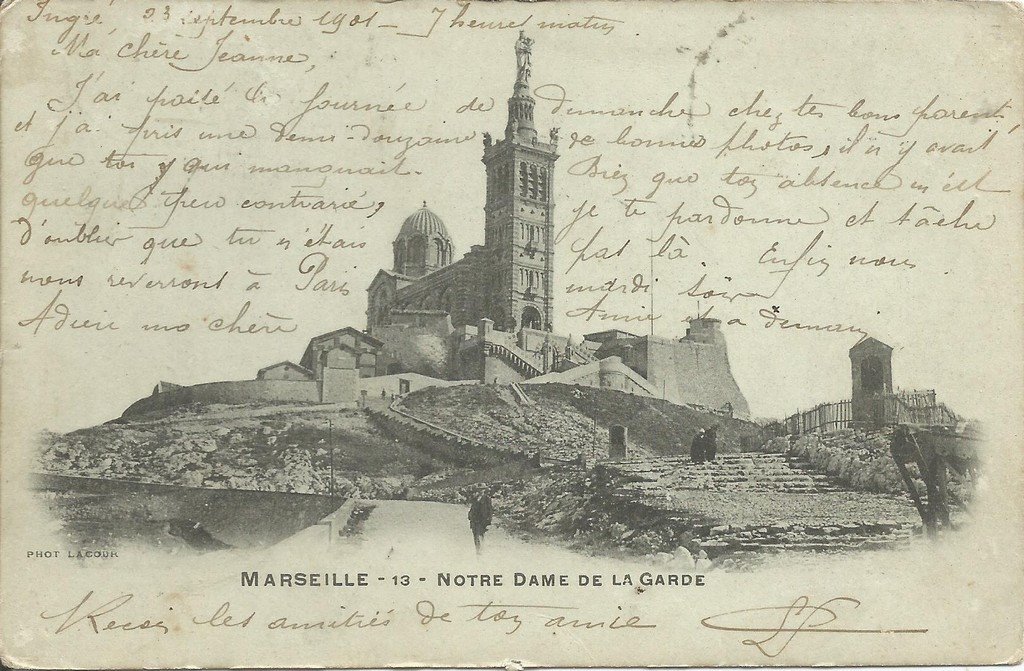 Ingré 23 septembre 1901 - 7 heures matin
Ma chère Jeanne,
J'ai passé la journée de dimanche chez tes bons parents
et j'ai pris une demi-douzaine de bonnes photos, il n'y avait
que toi y qui manquait. Bien que ton absence m'ait
quelque peu contrarié, je te pardonne et tâche
d'oublier que tu n'étais pas là. Enfin nous
nous reverrons à Paris mardi soir
Adieu ma chère Amie et à demain
PHOT LACOUR
MARSEILLE - 13 - NOTRE DAME DE LA GARDE
Reçois les amitiés de ton amie